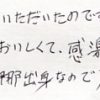 いただいたのです
おいしくて、感激
那出身なので